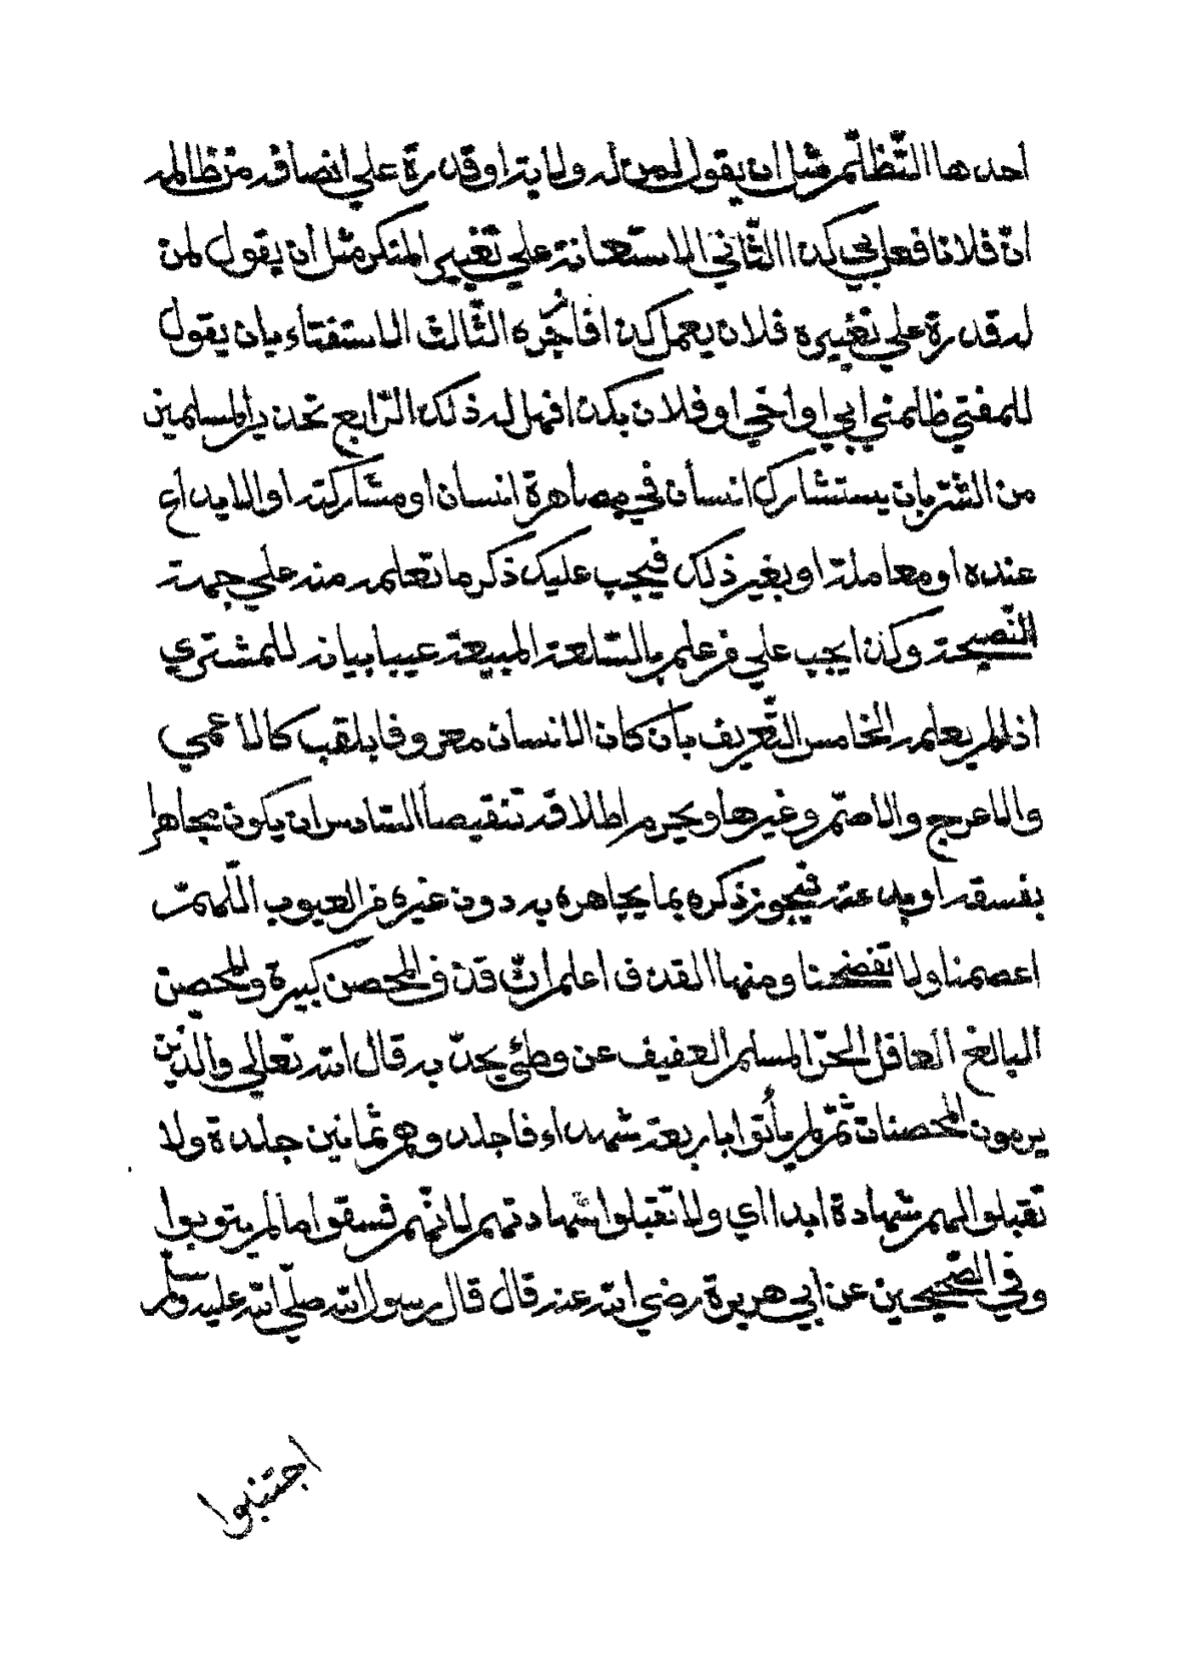 احدها التّظلّم مثل ان يقول لمن له ولاية او قدرة علي انصافه من ظالمه
انّ فلانا فعل بي كذا الثّاني الاستعانة علي تغيير المنكر مثل أن يقول لمن
له قدرة علي تغييره فلان يعمل كذا فاجُره الثّالث الاستفتاء بان يقول
للمفتي ظلمني ابي او أخي او فلان بكذا فهل له ذلك الرّابع تحذير المسلمين
من الشّر بان يستشارك انسأن في مصاهرة انسان او مشاركته او الايداع
عنده او معاملة او بغير ذلك فيجب عليك ذكر ما تعلمه منه علي جهة
النّصيحة وكذا يجب علي من علم بالسّلعة المبيعة عيبا بيانه للمشتري
اذا لم يعلمه الخامس التّعريف بأن كان الانسان معروفا بلقب كالاعمي
والاعرج والاصمّ وغيرها ويحرم اطلاقه تنقيصا السّادس ان يكون مجاهرا
بفسقه او بدعته فيجوز ذكره بما يجاهره به دون غيره من العيوب اللّهمّ
اعصمنا ولا تفضحنا ومنها القذف اعلم أنّ قذف المحصن كبيرة والمحصن
البالغ العاقل الحرّ المسلم العفيف عن وطئ يحدّ به قال الله تعالي والذين
يرمون المحصنات ثمّ لم يأتوا باربعة شهداء فاجلدوهم ثمانين جلدة ولا
تقبلوا لهم شهادة ابدا اي ولا تقبلوا شهادتهم لانّهم فسقوا ما لم يتوبوا
وفي الصّحيحين عن ابي هريرة رضي الله عنه قال قال رسول الله صلّي الله عليه وسلم
اجتنبوا